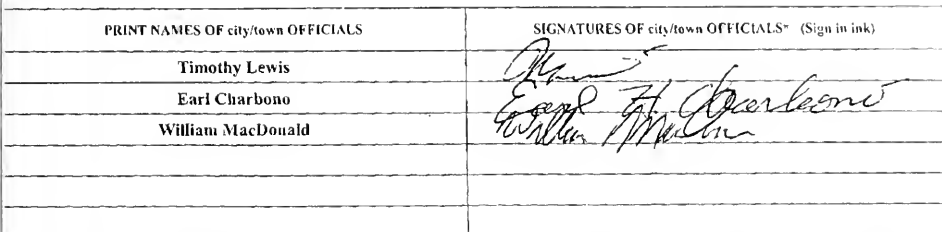 PRINT NAMES OF city/town OFFICIALS SIGNATURES OF city/town OFFICIALS* (Sign in ink)
Timothy Lewis
Earl Charbono Earl H. Charbono
William MacDonald William